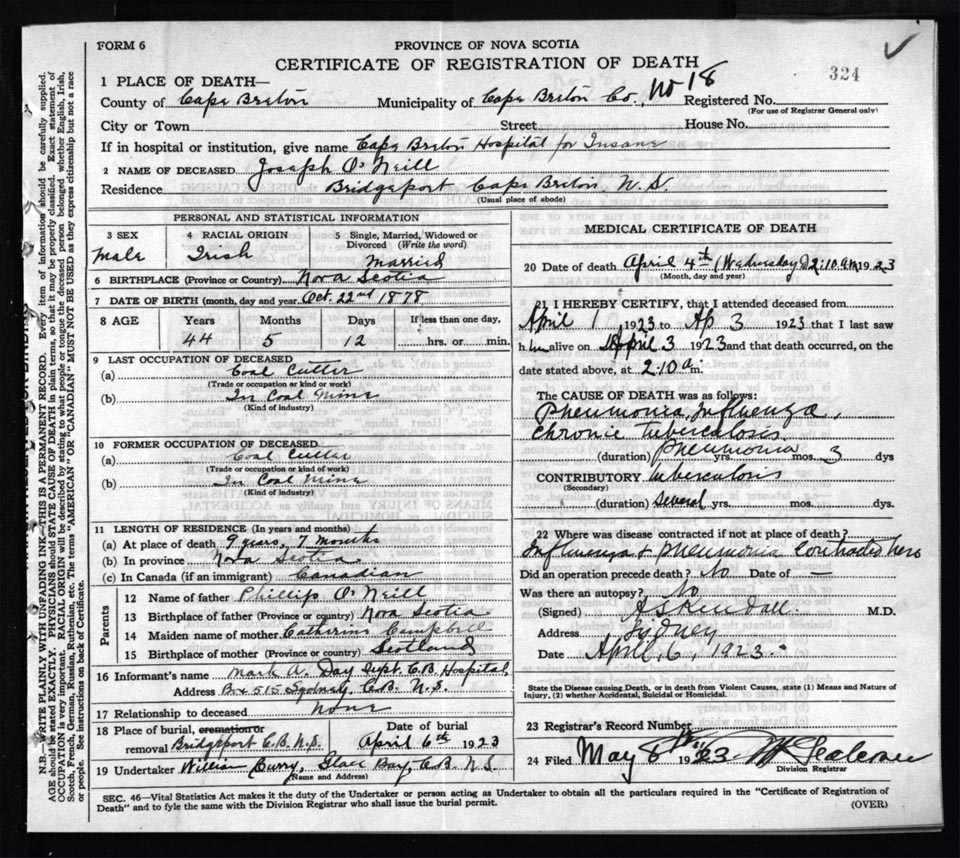 FORM 6
PROVINCE OF NOVA SCOTIA
CERTIFICATE OF REGISTRATION OF DEATH
324
1 PLACE OF DEATH—
County of Cape Breton Municipality of Cape Breton Co., No 18 Registered No.
(For use of Registrar General only)
City or Town Street House No.
If in hospital or institution, give name Cape Breton Hospital for Insane
2 NAME OF DECEASED Joseph O'Neill
Residence Bridgeport Cape Breton, N.S.
(Usual place of abode)
PERSONAL AND STATISTICAL INFORMATION
3 SEX
Male
4 RACIAL ORIGIN
Irish
5 Single, Married, Widowed or Divorced (Write the word)
Married
6 BIRTHPLACE (Province or Country) Nova Scotia
7 DATE OF BIRTH (month, day and year) Oct. 22nd 1878
8 AGE Years Months Days If less than one day,
44 5 12 hrs. or min.
9 LAST OCCUPATION OF DECEASED
(a) Coal Cutter
(Trade or occupation or kind or work)
(b) In Coal Mine
(Kind of industry)
10 FORMER OCCUPATION OF DECEASED
(a) Coal Cutter
(Trade or occupation or kind or work)
(b) In Coal Mine
(Kind of industry)
11 LENGTH OF RESIDENCE (In years and months)
(a) At place of death 9 years, 7 months
(b) In province Nova Scotia
(c) In Canada (if an immigrant) Canadian
Parents
12 Name of father Phillip O'Neill
13 Birthplace of father (Province or Country) Nova Scotia
14 Maiden name of mother Catherine Campbell
15 Birthplace of mother (Province or Country) Scotland
16 Informant's name Mark A. Day Supt. C.B. Hospital,
Address Box 515 Sydney, C.B. N.S.
17 Relationship to deceased None
18 Place of burial, cremation or removal Bridgeport C.B.N.S.
Date of burial
April 6th 1923
19 Undertaker William Curry, Glace Bay, C.B. N.S.
(Name and Address)
MEDICAL CERTIFICATE OF DEATH
20 Date of death April 4th (Wednesday) 2:10 am 1923
(Month, day and year)
21. I HEREBY CERTIFY, that I attended deceased from
April 1 1923 to Ap 3 1923 that I last saw
him alive on April 3 1923 and that death occurred, on the
date stated above, at 2:10 a.m.
The CAUSE OF DEATH was as follows:
Pneumonia, Influenza,
Chronic tuberculosis
(duration) Pneumonia yrs. mos. 3 dys
CONTRIBUTORY tuberculosis
(Secondary)
(duration) several yrs. mos. dys.
22 Where was disease contracted if not at place of death?
Influenza & pneumonia contracted here
Did an operation precede death? No Date of —
Was there an autopsy? No
(Signed) A S Kendall M.D.
Address Sydney
Date April, 6, 1923.
State the Disease causing Death, or in death from Violent Causes, state (1) Means and Nature of Injury, (2) whether Accidental, Suicidal or Homicidal.
23 Registrar's Record Number
24 Filed May 8th 1923
Division Registrar
SEC. 46—Vital Statistics Act makes it the duty of the Undertaker or person acting as Undertaker to obtain all the particulars required in the "Certificate of Registration of
Death" and to fyle the same with the Division Registrar who shall issue the burial permit. (OVER)
N.B. WRITE PLAINLY WITH UNFADING INK—THIS IS A PERMANENT RECORD. Every item of information should be carefully supplied.
AGE should be stated EXACTLY. PHYSICIANS should STATE CAUSE OF DEATH in plain terms, so that it may be properly classified. Exact statement of
OCCUPATION is very important. RACIAL ORIGIN will be described by stating to what people or tongue the deceased person belonged, whether English, Irish,
Scotch, French, German, Russian, Ruthenian, etc. The terms "AMERICAN" OR "CANADIAN" MUST NOT BE USED as they express citizenship but not a race
or people. See instructions on back of Certificate.